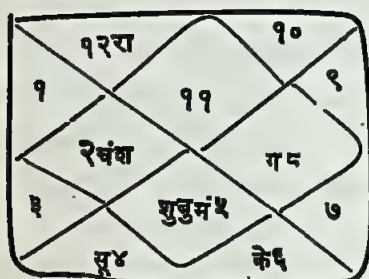 १२रा १०
१ ११ ९
२चंश ग८
३ शुबुमं५ ७
सू४ के६